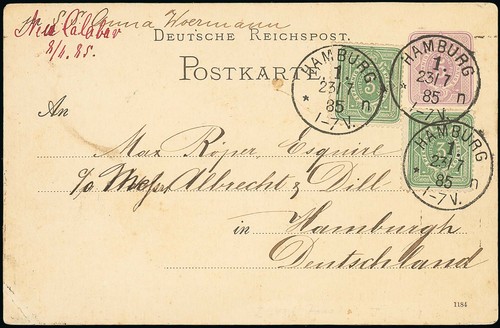 per S.S. Anna Woermann
New Calabar
2/4. 85.
DEUTSCHE REICHSPOST.
POSTKARTE
HAMBURG
1.
23/7
85 n
1-7V.
HAMBURG
1.
23/7
85 n
1-7V.
HAMBURG
1.
23/7
85 n
1-7V.
3
3
An
Max Röper, Esquire
c/o Messrs Albrecht & Dill
in Hamburgh
Deutschland
1184